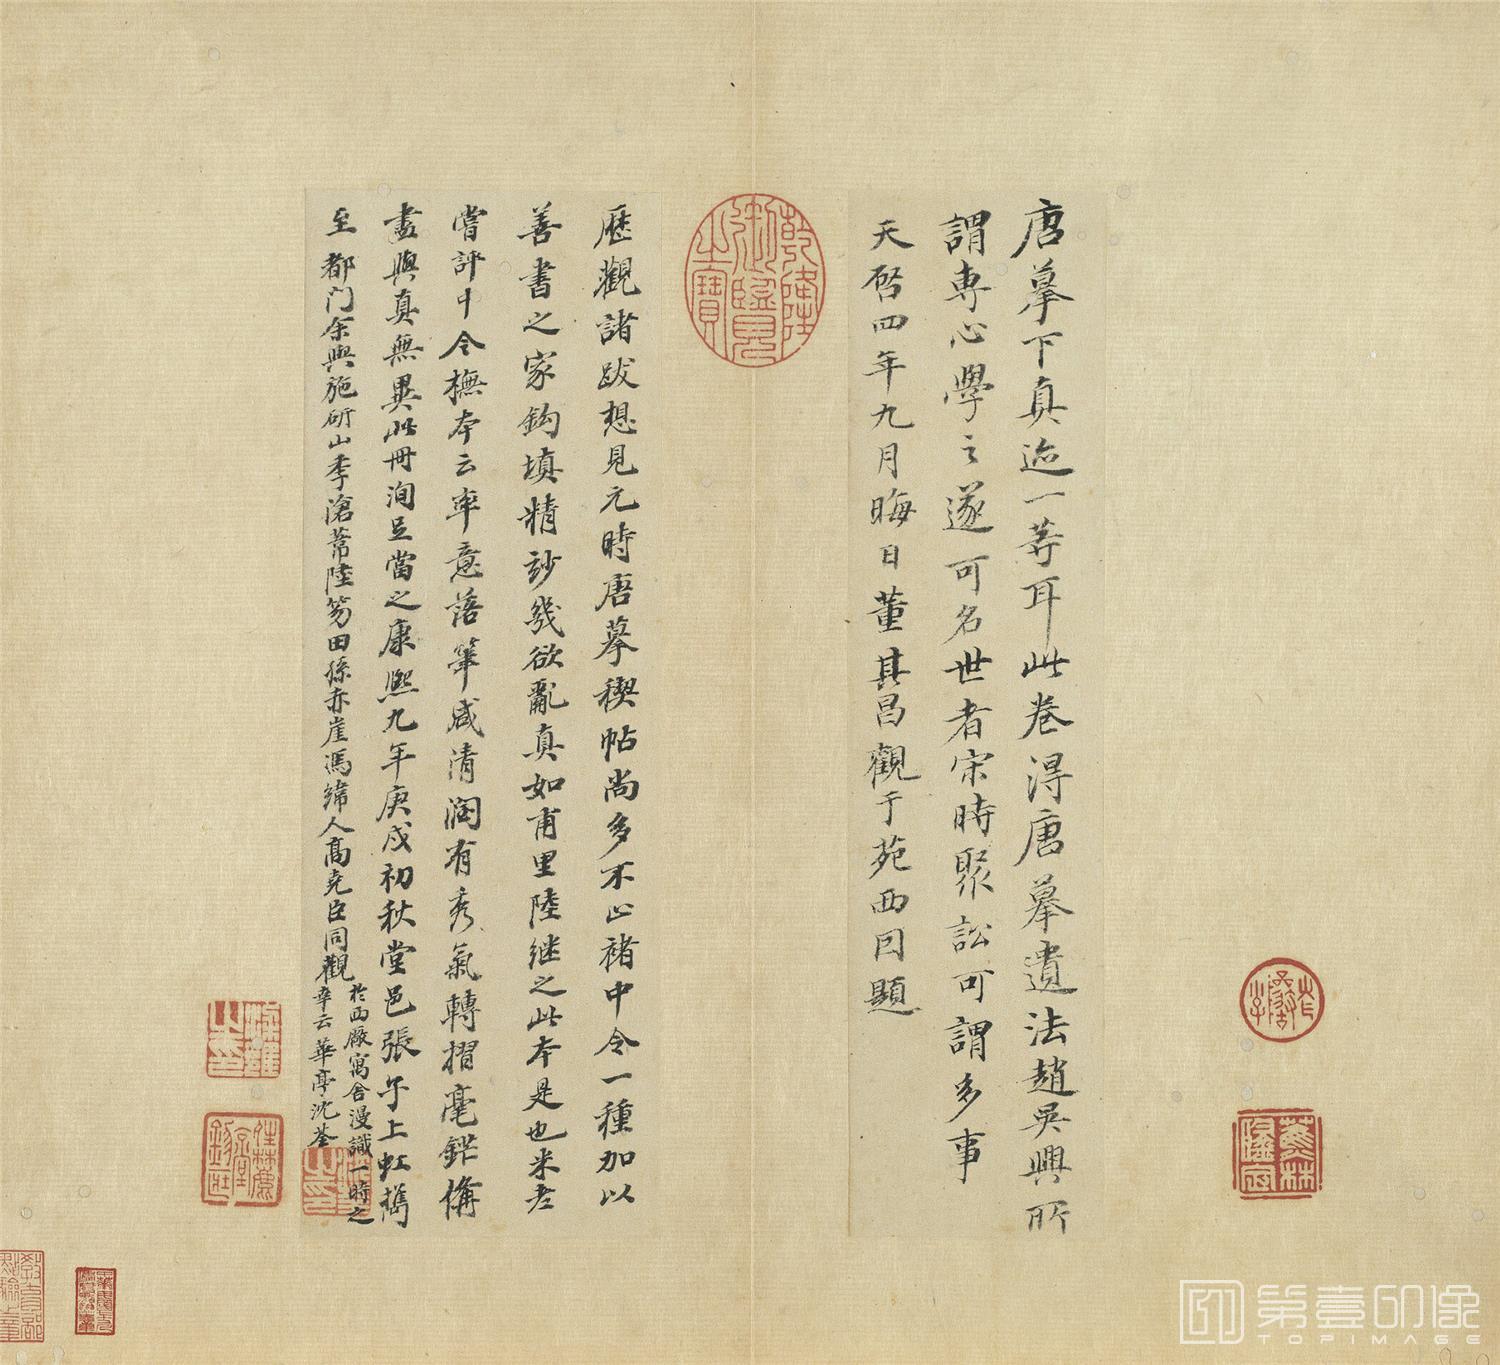 唐摹下真迹一等耳此卷得唐摹遺法趙吳興所
謂專心學之遂可名世者宋時聚訟可謂多事
天啓四年九月晦日董其昌觀于苑西因題
乾隆御覽之寶
歷觀諸跋想見元時唐摹稧帖尚多不止褚中令一種加以
善書之家鈎填精妙幾欲亂真如甫里陸继之此本是也米老
嘗評中令橅本云率意落筆咸清潤有秀氣轉摺毫鋩俻
盡與真無異此冊洵足當之康熙九年庚戍初秋堂邑張子上虹攜
至都門余與施硏山季滄葦陸笏田孫赤崖馮緯人高堯臣同觀
於西厰寓舍漫識一時之
幸云華亭沈荃
蕉林
第壹印像
TOPIMAGE